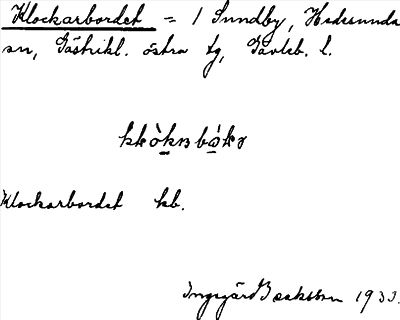 Klockarbordet = 1 Sundby, Hedesunda
sn, Gästrikl. östra tg, Gävleb. l.
Klockarbordet kb.
Ingegärd Isaksson 1933.